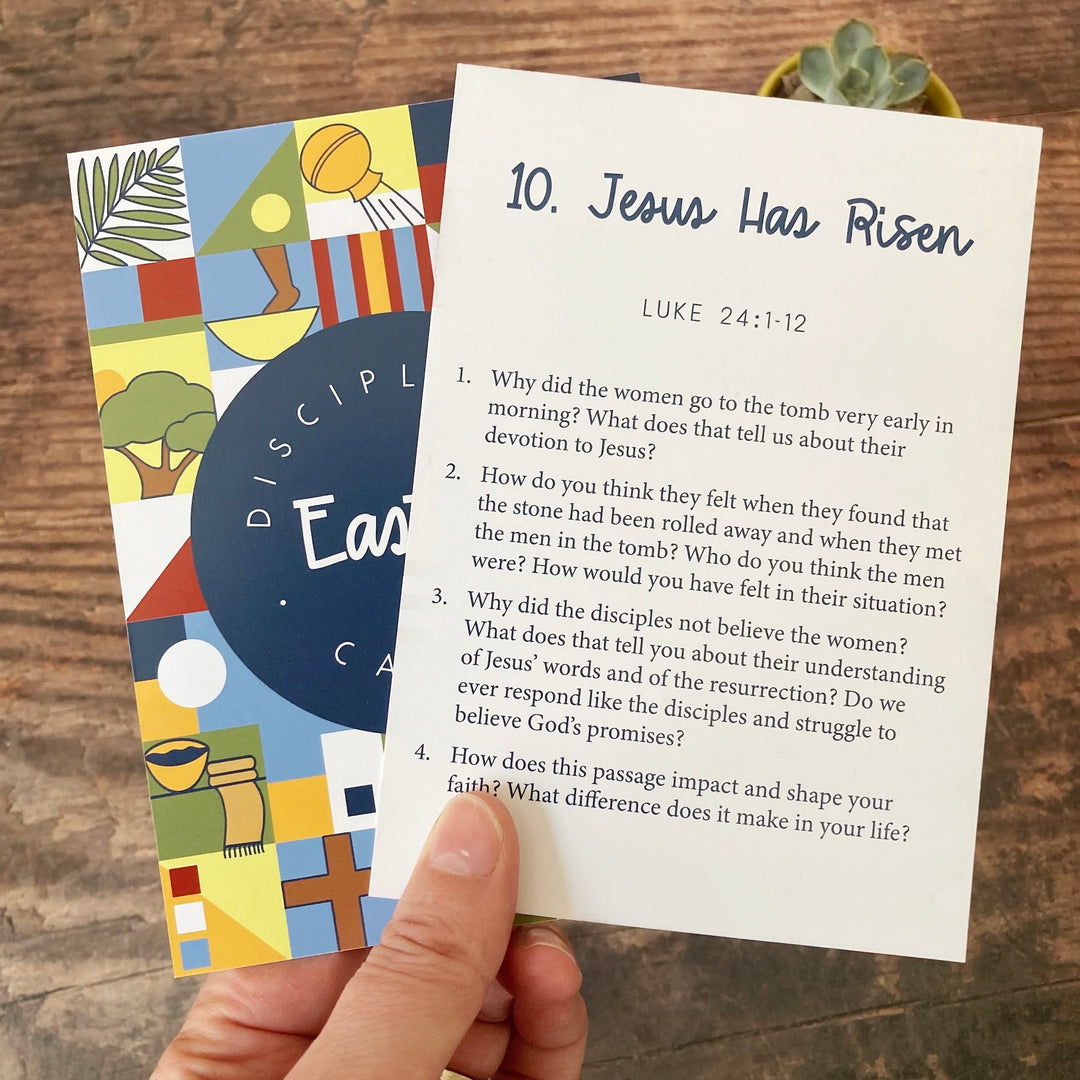 10. Jesus Has Risen
LUKE 24:1-12
1. Why did the women go to the tomb very early in
morning? What does that tell us about their
devotion to Jesus?
2. How do you think they felt when they found that
the stone had been rolled away and when they met
the men in the tomb? Who do you think the men
were? How would you have felt in their situation?
3. Why did the disciples not believe the women?
What does that tell you about their understanding
of Jesus' words and of the resurrection? Do we
ever respond like the disciples and struggle to
believe God's promises?
4. How does this passage impact and shape your
faith? What difference does it make in your life?
DISCIPL
Eas
CA